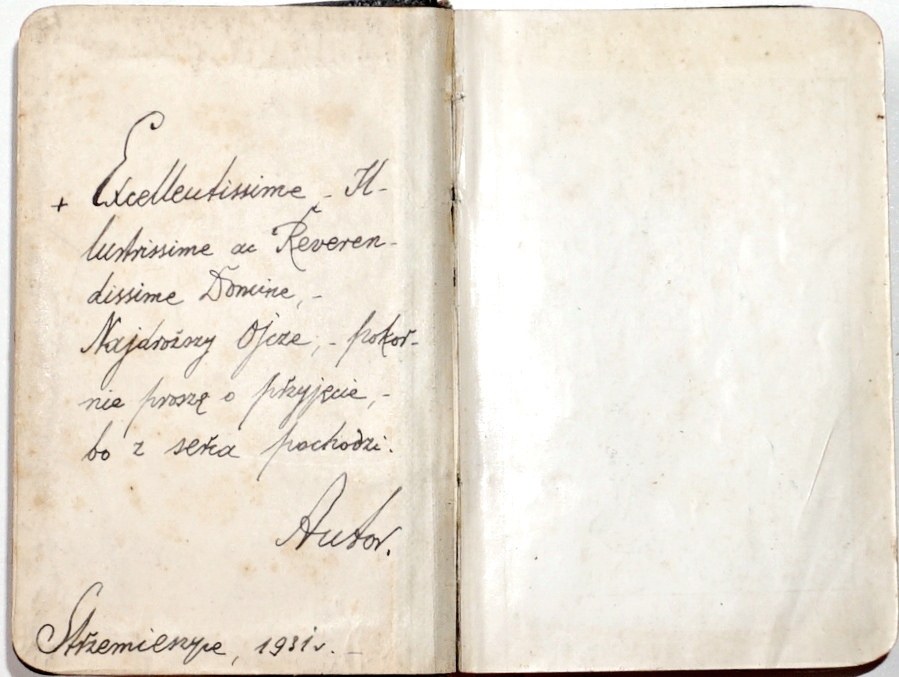 + Excellentissime - Il-
lustrissime ac Reveren-
dissime Domine,-
Najdroższy Ojcze,- pokor-
nie proszę o przyjęcie,-
bo z serca pochodzi.
Autor.
Strzemieszyce, 1931 r. -